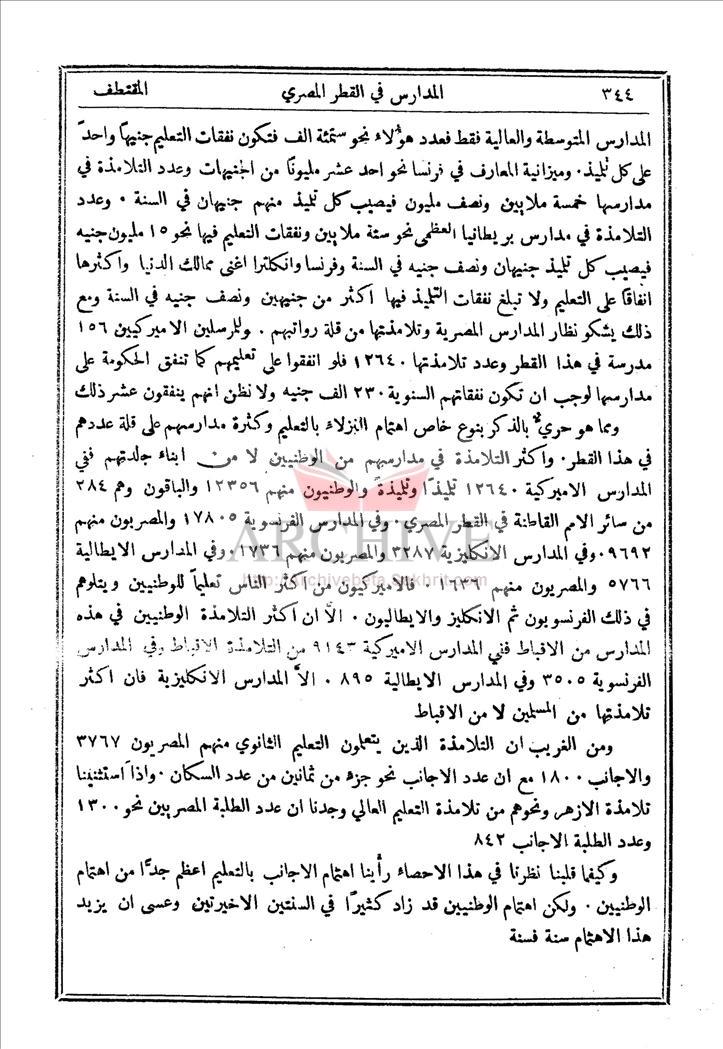 ٣٤٤ المدارس في القطر المصري المقتطف
المدارس المتوسطة والعالية فقط فعدد هؤلاء نحو ستمئة الف فتكون نفقات التعليم جنيهاً واحداً
على كل تلميذ. وميزانية المعارف في فرنسا نحو احد عشر مليونًا من الجنيهات وعدد التلامذة في
مدارسها خمسة ملايين ونصف مليون فيصيب كل تلميذ منهم جنيهان في السنة . وعدد
التلامذة في مدارس بريطانيا العظمى نحو ستة ملايين ونفقات التعليم فيها نحو ١٥ مليون جنيه
فيصيب كل تلميذ جنيهان ونصف جنيه في السنة وفرنسا وانكلترا اغنى ممالك الدنيا واكثرها
انفاقًا على التعليم ولا تبلغ نفقات التلميذ فيها اكثر من جنيهين ونصف جنيه في السنة ومع
ذلك يشكو نظار المدارس المصرية وتلامذتها من قلة رواتبهم . وللمرسلين الاميركيين ١٥٦
مدرسة في هذا القطر وعدد تلامذتها ١٢٦٤٠ فلو انفقوا على تعليمهم كما تنفق الحكومة على
مدارسها لوجب ان تكون نفقاتهم السنوية ٢٣٠ الف جنيه ولا نظن انهم ينفقون عشر ذلك
ومما هو حريٌّ بالذكر بنوع خاص اهتمام النزلاء بالتعليم وكثرة مدارسهم على قلة عددهم
في هذا القطر . واكثر التلامذة في مدارسهم من الوطنيين لا من ابناء جلدتهم ففي
المدارس الاميركية ١٢٦٤٠ تلميذًا وتلميذةً والوطنيون منهم ١٢٣٥٦ والباقون وهم ٢٨٤
من سائر الامم القاطنة في القطر المصري . وفي المدارس الفرنسوية ١٧٨٠٥ والمصريون منهم
٩٦٩٢ . وفي المدارس الانكليزية ٣٢٨٧ والمصريون منهم ١٧٣٦ . وفي المدارس الايطالية
٥٧٦٦ والمصريون منهم ١٦٣٦ . فالاميركيون من اكثر الناس تعليماً للوطنيين ويتلوهم
في ذلك الفرنسويون ثم الانكليز والايطاليون . الاَّ ان اكثر التلامذة الوطنيين في هذه
المدارس من الاقباط ففي المدارس الاميركية ٩١٤٣ من التلامذة الاقباط وفي المدارس
الفرنسوية ٣٥٠٥ وفي المدارس الايطالية ٨٩٥ . الاَّ المدارس الانكليزية فان اكثر
تلامذتها من المسلمين لا من الاقباط
ومن الغريب ان التلامذة الذين يتعلمون التعليم الثانوي منهم المصريون ٣٧٦٧
والاجانب ١٨٠٠ مع ان عدد الاجانب نحو جزء من ثمانين من عدد السكان . واذا استثنينا
تلامذة الازهر ونحوهم من تلامذة التعليم العالي وجدنا ان عدد الطلبة المصريين نحو ١٣٠٠
وعدد الطلبة الاجانب ٨٤٢
وكيفما قلبنا نظرنا في هذا الاحصاء رأينا اهتمام الاجانب بالتعليم اعظم جدًّا من اهتمام
الوطنيين . ولكن اهتمام الوطنيين قد زاد كثيرًا في السنتين الاخيرتين وعسى ان يزيد
هذا الاهتمام سنة فسنة
ARCHIVE
http://Archivebeta.Sakhrit.com